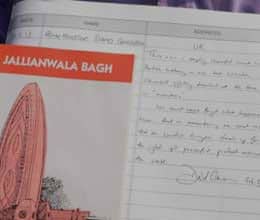 NAME
ADDRESS
UK
JALLIANWALA BAGH
This was a deeply shameful event in
British history - one that Winston
Churchill rightly described at the time as
"monstrous".
We must never forget what happened
here. And in remembering we must ensure
that the United Kingdom stands up for
the right of peaceful protest around
the world.